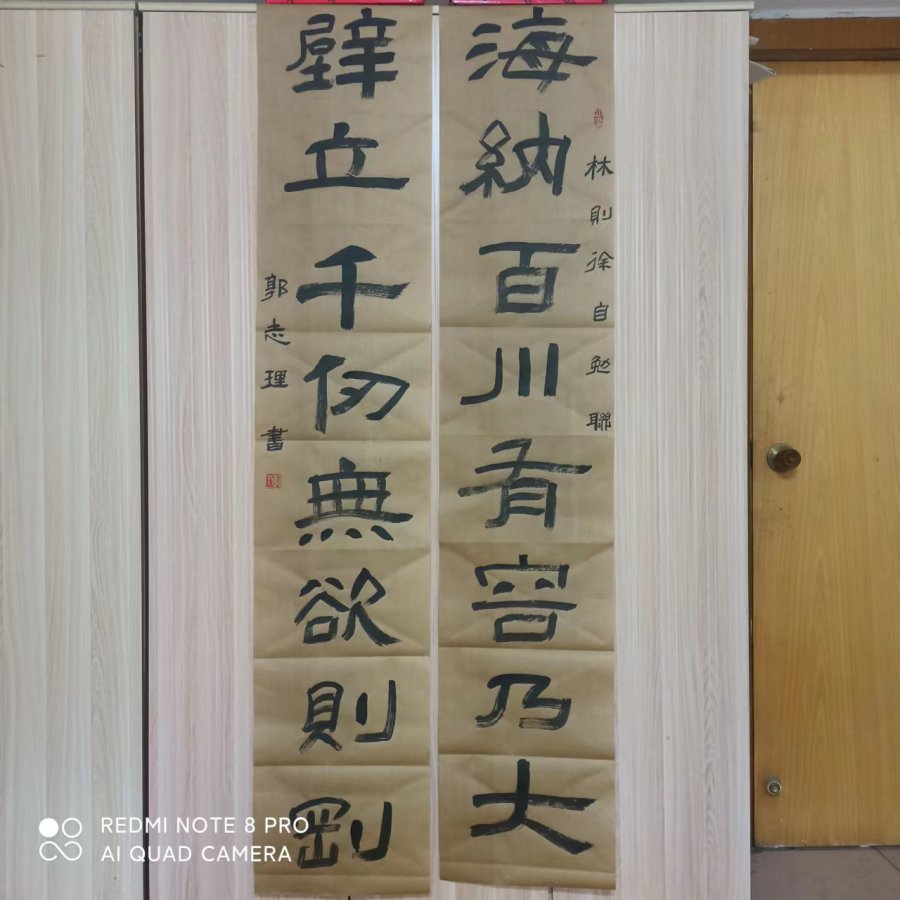 林則徐自勉聯
海納百川有容乃大
壁立千仞無欲則剛
郭志理書
REDMI NOTE 8 PRO
AI QUAD CAMERA